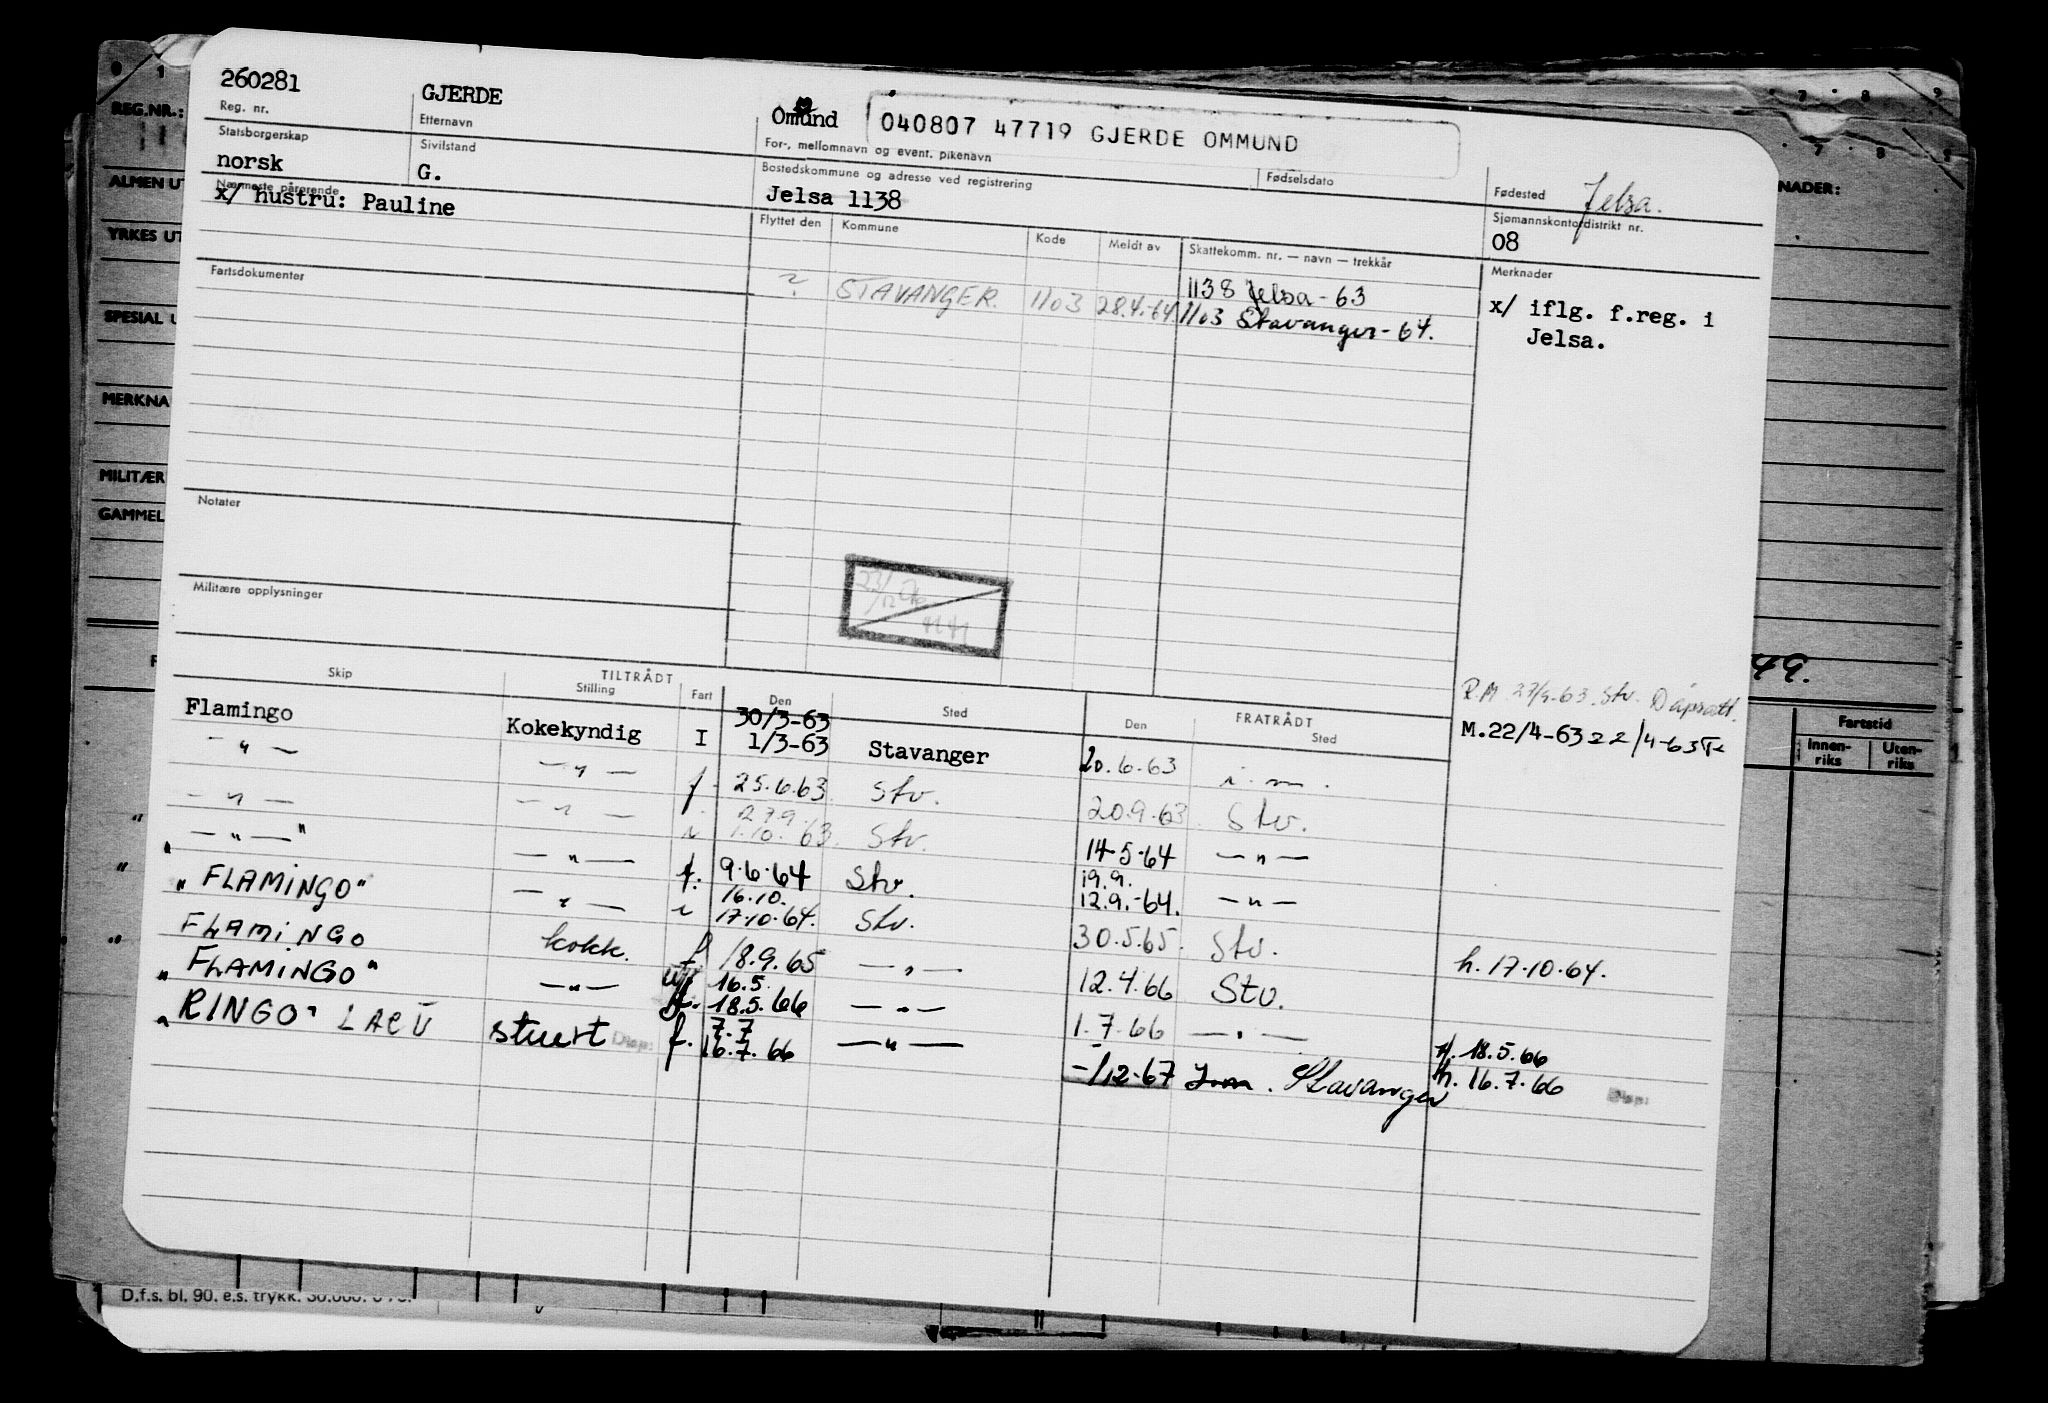 260281
GJERDE
Omund
040807 47719 GJERDE OMMUND
Reg. nr.
Etternavn
For-, mellomnavn og event. pikenavn
Statsborgerskap
Sivilstand
Bostedskommune og adresse ved registrering
Fødselsdato
Fødested
Jelsa.
norsk
G.
Jelsa 1138
Sjømannskontordistrikt nr.
08
Nærmeste pårørende
x/ hustru: Pauline
Flyttet den
Kommune
Kode
Meldt av
Skattekomm. nr. — navn — trekkår
Merknader
Fartsdokumenter
? STAVANGER. 1103 28.4.-64.
1138 Jelsa - 63
1103 Stavanger - 64.
x/ iflg. f.reg. i
Jelsa.
Notater
Militære opplysninger
23/12
Skip
TILTRÅDT
Stilling
Fart
Den
Sted
FRATRÅDT
Den
Sted
R.M 27/9-63. Stv.
M.22/4-63 22/4-63
Flamingo Kokekyndig I 30/3-63
1/3-63 Stavanger 20.6.63 i.m.
—"— —"— f. 25.6.63. Stv. 20.9.63 Stv.
—"— —"— i 27.9.
1.10.63. Stv. 14.5.64 —"—
—"—" —"— f. 9.6.64 Stv. 19.9.
12.9.-64. —"—
"FLAMINGO" —"— i 16.10.
17.10.64. Stv. 30.5.65. Stv. h. 17.10.64.
FLAMINGO kokk. f. 18.9.65 —"— 12.4.66 Stv.
"FLAMINGO" —"— 16.5.
18.5.66 —"— 1.7.66 —"— 18.5.66
"RINGO" LACU stuert Disp: f. 7.7
16.7.66 —"— -/12-67 Stavanger h. 16.7.66
Disp:
REG.NR.:
ALMEN UT
YRKES UT
SPESIAL U
MERKNA
MILITÆR
GAMMEL
NADER:
49.
Fartstid
Innen-
riks
Uten-
riks
D.f.s. bl. 90. e.s. trykk. 30.000.